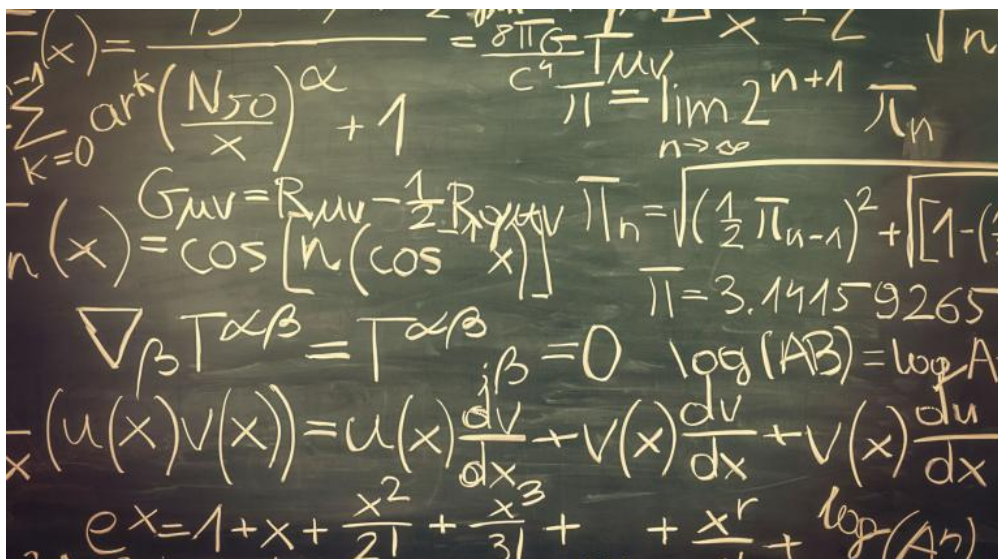 (x)=
= 8πG/c⁴ Tμν
x
√n
∑ k=0 ar^k (N50/x)^α + 1
π = lim n→∞ 2^{n+1} π_n
Gμν = Rμν - 1/2 R gμν
π_n = √(1/2 π_{n-1})² + √[1-(
n(x) = cos[n(cos⁻¹ x)]
π=3.14159265
∇_β T^{αβ} = T^{αβ}_{;β} = 0
log(AB)=log A
(u(x)v(x))=u(x) dv/dx + v(x) dv/dx + v(x) du/dx
e^x=1+x+ x²/2! + x³/3! + + x^r +
log(Aⁿ)